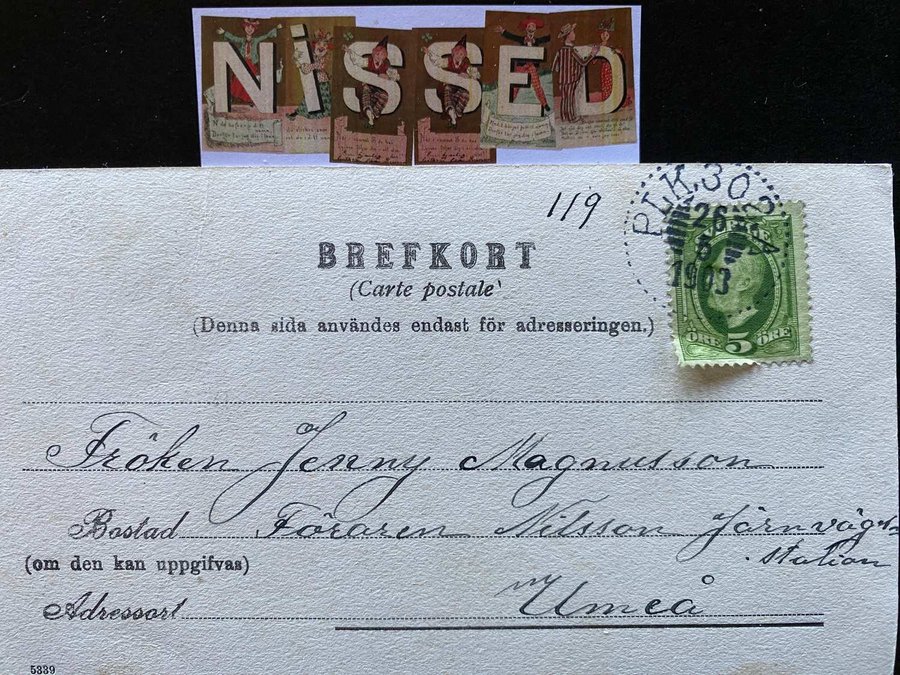 NiSSED
119
PLK.303
26
5
1903
SVERIGE
ÖRE 5 ÖRE
BREFKORT
(Carte postale)
(Denna sida användes endast för adresseringen.)
Fröken Jenny Magnusson
Bostad Föraren Nilsson Järnvägs-
station
(om den kan uppgifvas)
Adressort Umeå
5339